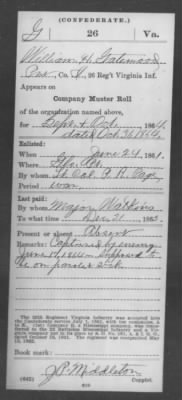 (CONFEDERATE.)
G 26 Va.
William H. Gatewood
Pvt., Co. G, 26 Reg't Virginia Inf.
Appears on
Company Muster Roll
of the organization named above,
for Sept & Oct, 1864.
dated Oct 31, 1864
Enlisted:
When June 24, 1861.
Where
By whom Lt. Col. P. R. Page
Period war
Last paid:
By whom Major Watkins
To what time Dec 31, 1863.
Present or absent Absent
Remarks: Captured by enemy
June 15, 1864 supposed to
be on parole sick
The 26th Regiment Virginia Infantry was accepted into
the Confederate service
Book mark:
J. P. Middleton
(642) Copyist.